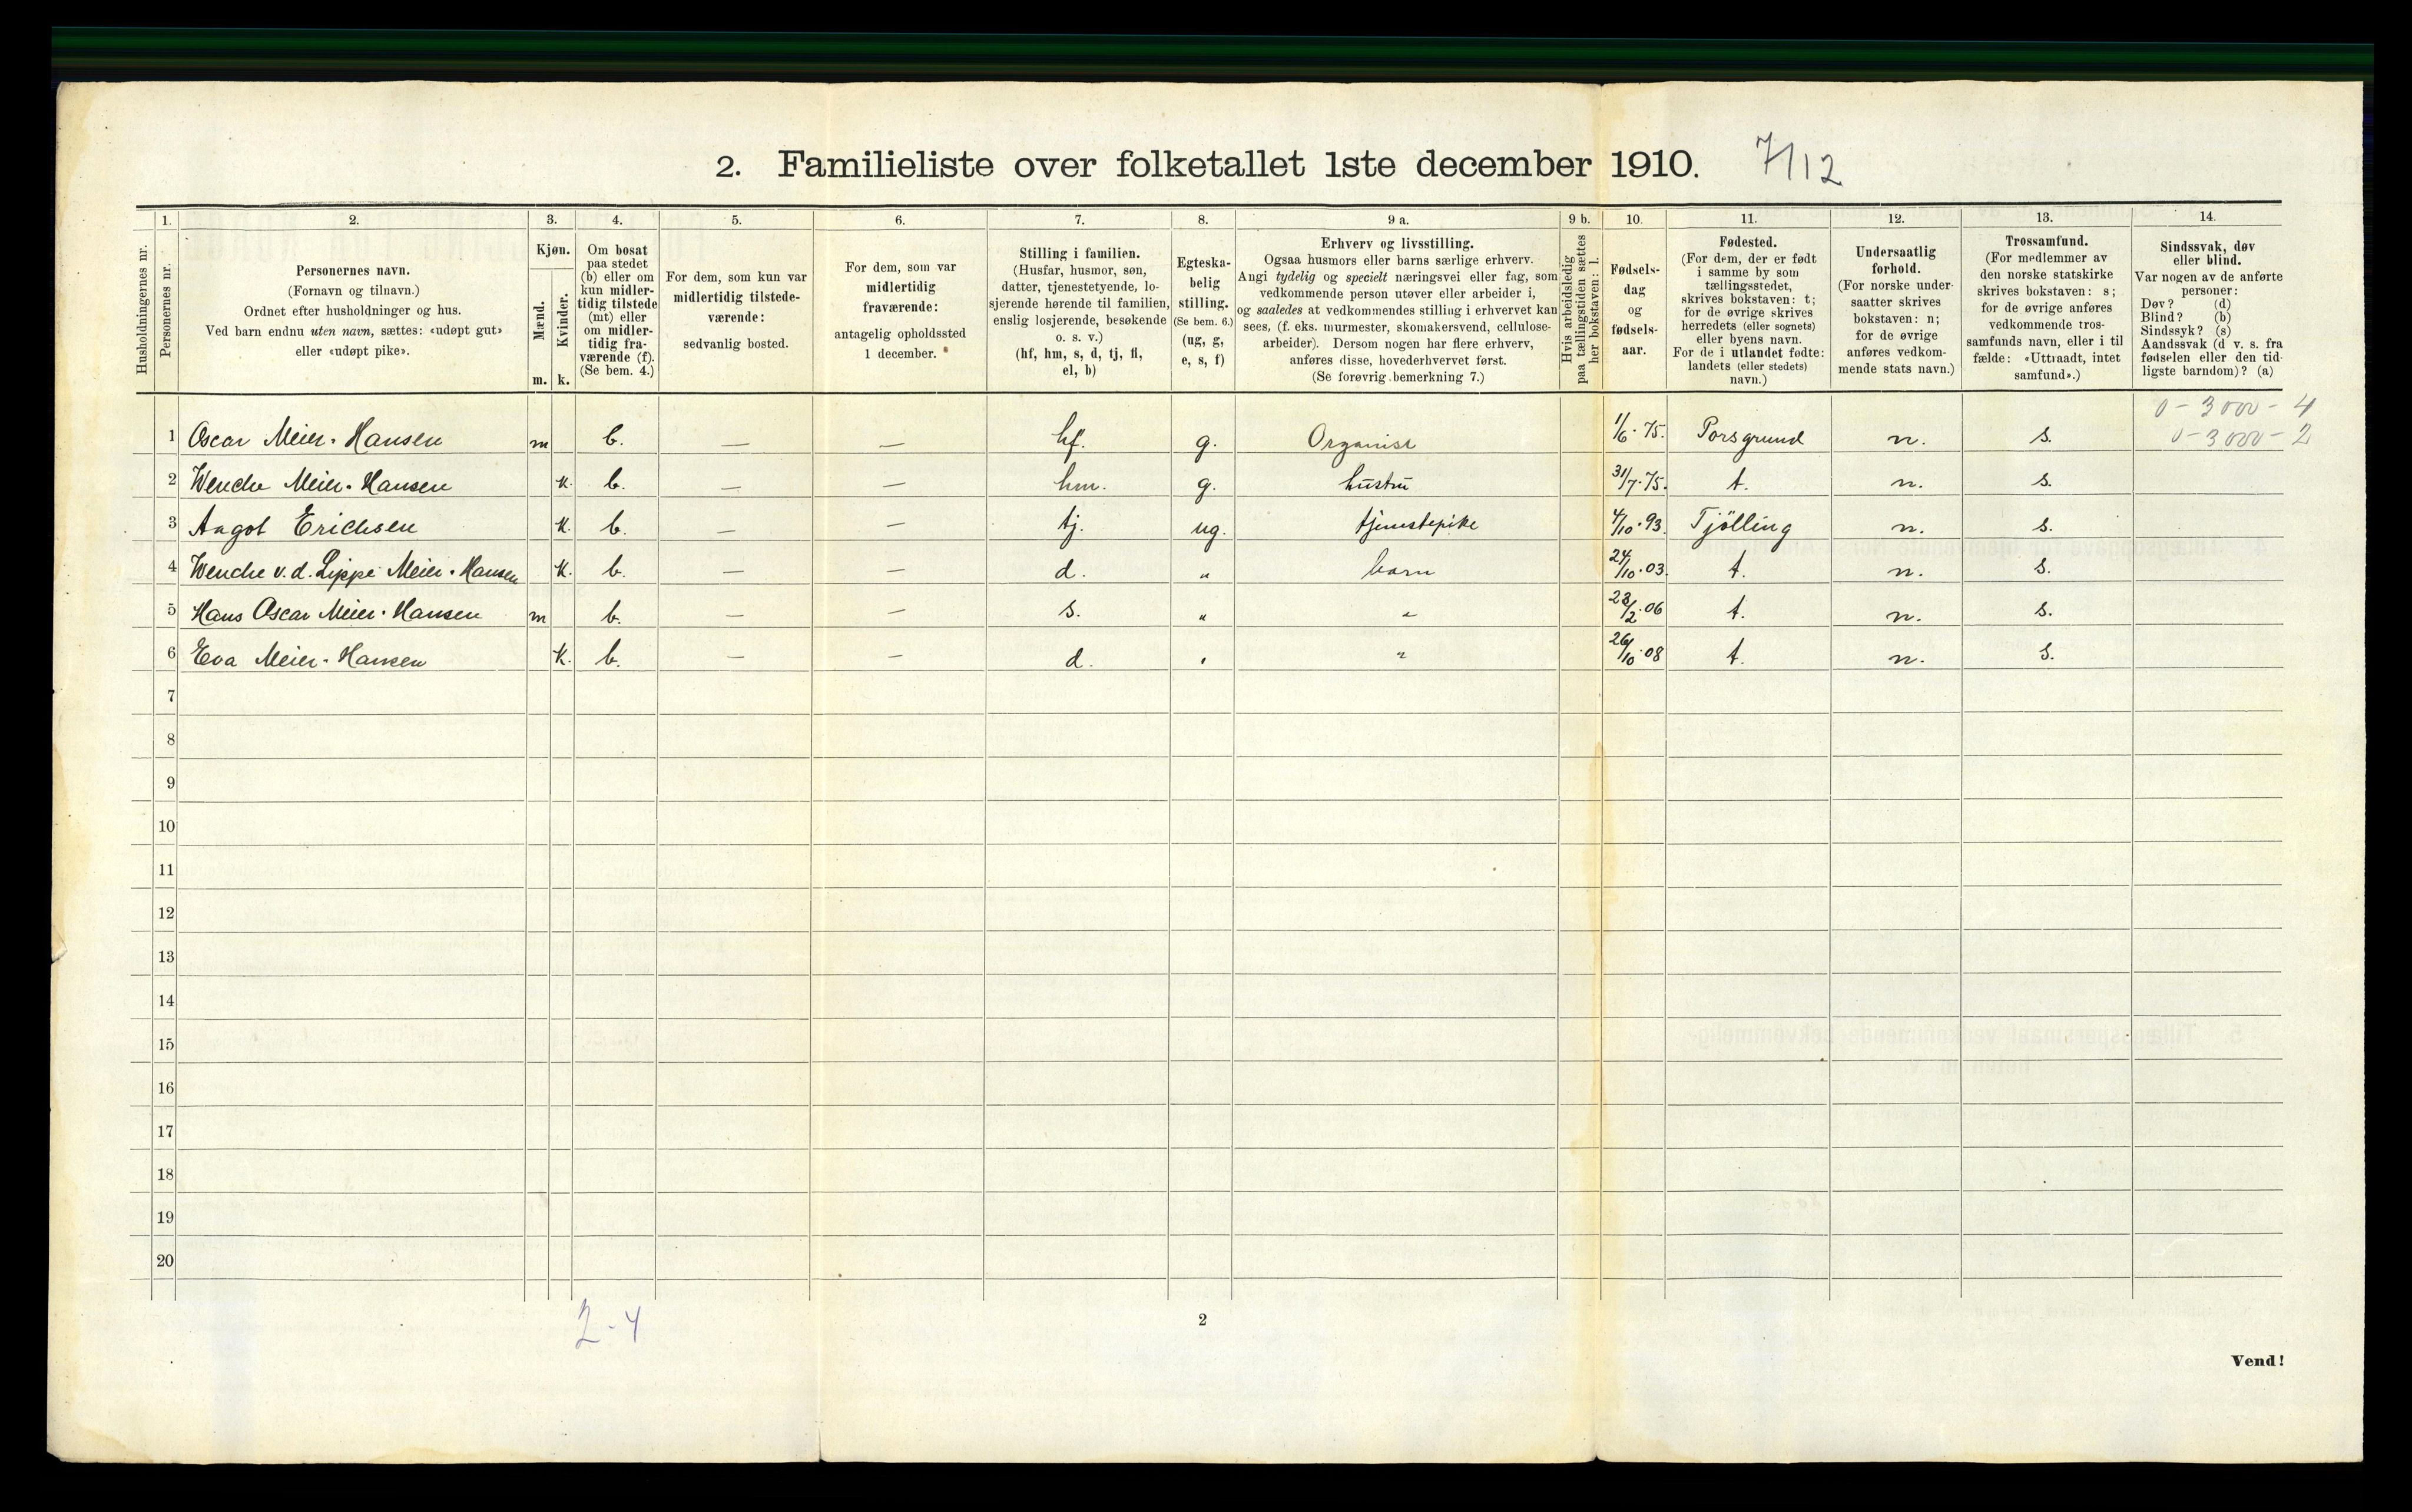 2. Familieliste over folketallet 1ste december 1910. 7/12
Husholdningernes nr.
1.
Personernes nr.
2.
Personernes navn.
(Fornavn og tilnavn.)
Ordnet efter husholdninger og hus.
Ved barn endnu uten navn, sættes: «udøpt gut»
eller «udøpt pike».
3.
Kjøn.
Mænd.
Kvinder.
m. k.
4.
Om bosat
paa stedet
(b) eller om
kun midler-
tidig tilstede
(mt) eller
om midler-
tidig fra-
værende (f).
(Se bem. 4.)
5.
For dem, som kun var
midlertidig tilstede-
værende:
sedvanlig bosted.
6.
For dem, som var
midlertidig
fraværende:
antagelig opholdssted
1 december.
7.
Stilling i familien.
(Husfar, husmor, søn,
datter, tjenestetyende, lo-
sjerende hørende til familien,
enslig losjerende, besøkende
o. s. v.)
(hf, hm, s, d, tj, fl,
el, b)
8.
Egteska-
belig
stilling.
(Se bem. 6.)
(ug, g,
e, s, f)
9 a.
Erhverv og livsstilling.
Ogsaa husmors eller barns særlige erhverv.
Angi tydelig og specielt næringsvei eller fag, som
vedkommende person utøver eller arbeider i,
og saaledes at vedkommendes stilling i erhvervet kan
sees, (f. eks. murmester, skomakersvend, cellulose-
arbeider). Dersom nogen har flere erhverv,
anføres disse, hovederhvervet først.
(Se forøvrig bemerkning 7.)
9 b.
Hvis arbeidsledig
paa tællingstiden sættes
her bokstaven: l.
10.
Fødsels-
dag
og
fødsels-
aar.
11.
Fødested.
(For dem, der er født
i samme by som
tællingsstedet,
skrives bokstaven: t;
for de øvrige skrives
herredets (eller sognets)
eller byens navn.
For de i utlandet fødte:
landets (eller stedets)
navn.)
12.
Undersaatlig
forhold.
(For norske under-
saatter skrives
bokstaven: n;
for de øvrige
anføres vedkom-
mende stats navn.)
13.
Trossamfund.
(For medlemmer av
den norske statskirke
skrives bokstaven: s;
for de øvrige anføres
vedkommende tros-
samfunds navn, eller i til
fælde: «Uttraadt, intet
samfund».)
14.
Sindssvak, døv
eller blind.
Var nogen av de anførte
personer:
Døv? (d)
Blind? (b)
Sindssyk? (s)
Aandssvak (d v. s. fra
fødselen eller den tid-
ligste barndom)? (a)
0-3000-4
1 Oscar Meier-Hansen m b. — — hf. g. Organist 1/6.75. Porsgrund n. s. 0-3000-2
2 Wenche Meier-Hansen k. b. — — hm. g. hustru 31/7.75. t. n. s.
3 Aagot Erichsen k. b. — — tj. ug. tjenestepike 4/10.93. Tjölling n. s.
4 Wenche v.d. Lippe Meier-Hansen k. b. — — d. " barn 24/10.03. t. n. s.
5 Hans Oscar Meier-Hansen m b. — — s. " " 23/2.06 t. n. s.
6 Eva Meier-Hansen k. b. — — d. " " 26/10.08 t. n. s.
7
8
9
10
11
12
13
14
15
16
17
18
19
20
2-4
2
Vend!